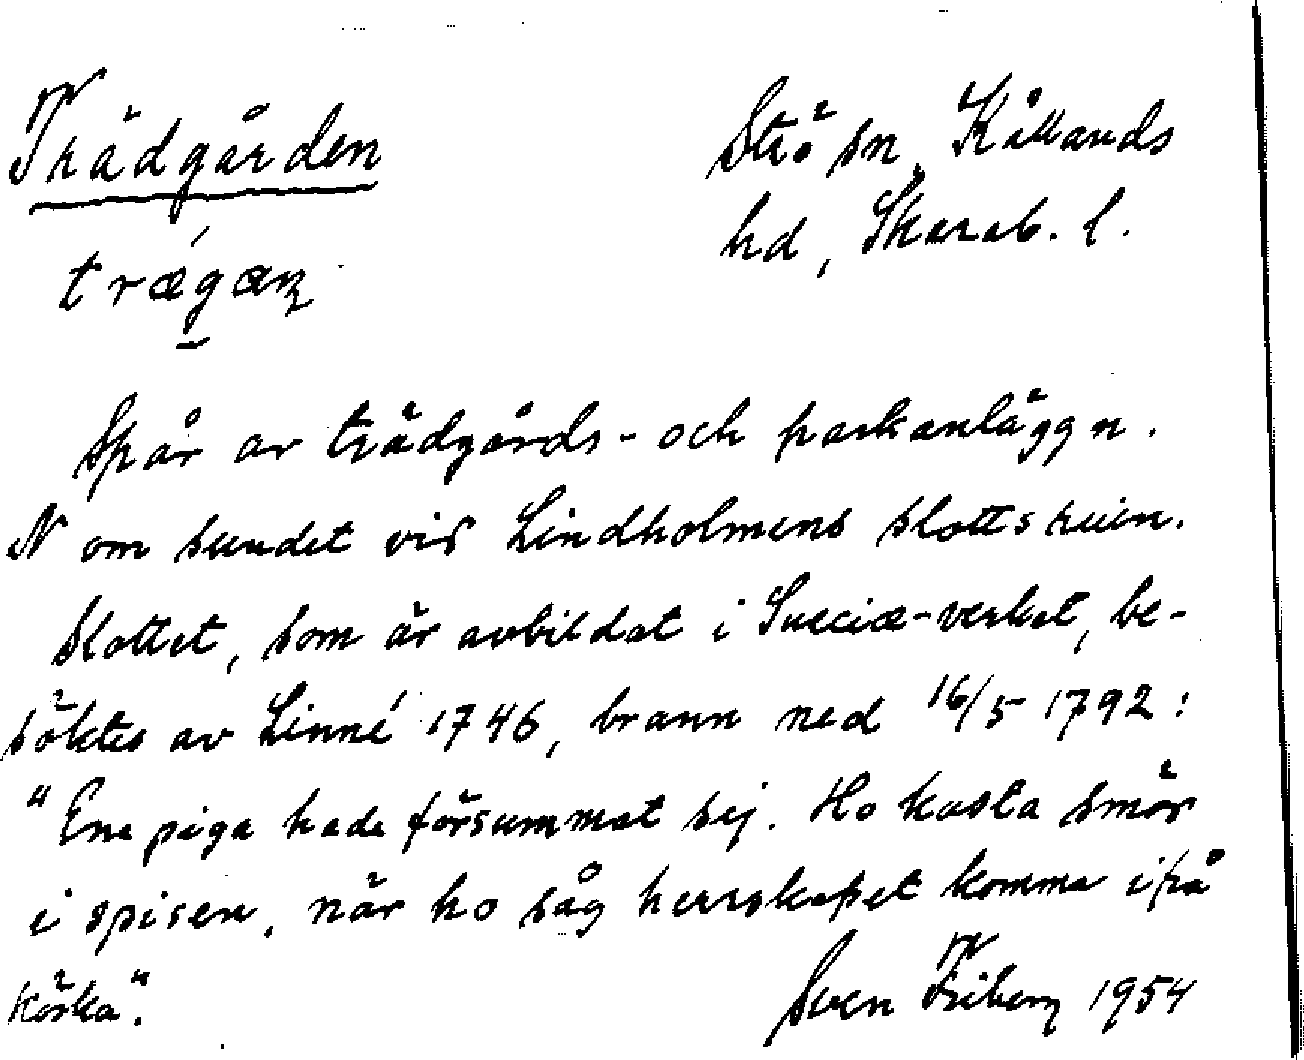 Trädgården
Strö sn, Kållands
hd, Skarab. l.
trǽgæṇ
Spår av trädgårds- och parkanläggn.
N om sundet vid Lindholmens slottsruin.
Slottet, som är avbildat i Sueciæ-verket, be-
söktes av Linné 1746, brann ned 16/5 1792:
"Ena piga hade försummat sej. Ho kasta smör
i spisen, när ho såg herrskapet komma ifrå
körka".
Sven Friberg 1954